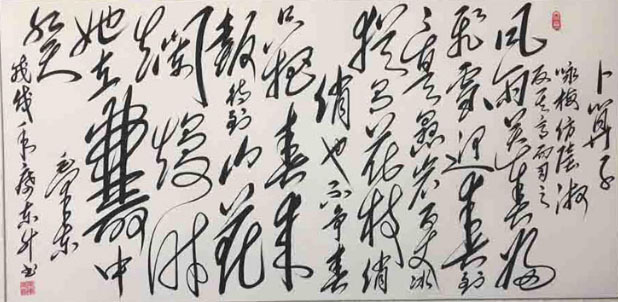 卜算子
咏梅仿陆
反其意而用之
风雨送春归
飞雪迎春到
已是悬崖百丈冰
犹有花枝俏
俏也不争春
只把春来
报待到山花
烂漫时
她在丛中
笑
毛泽东
戊戌东升书